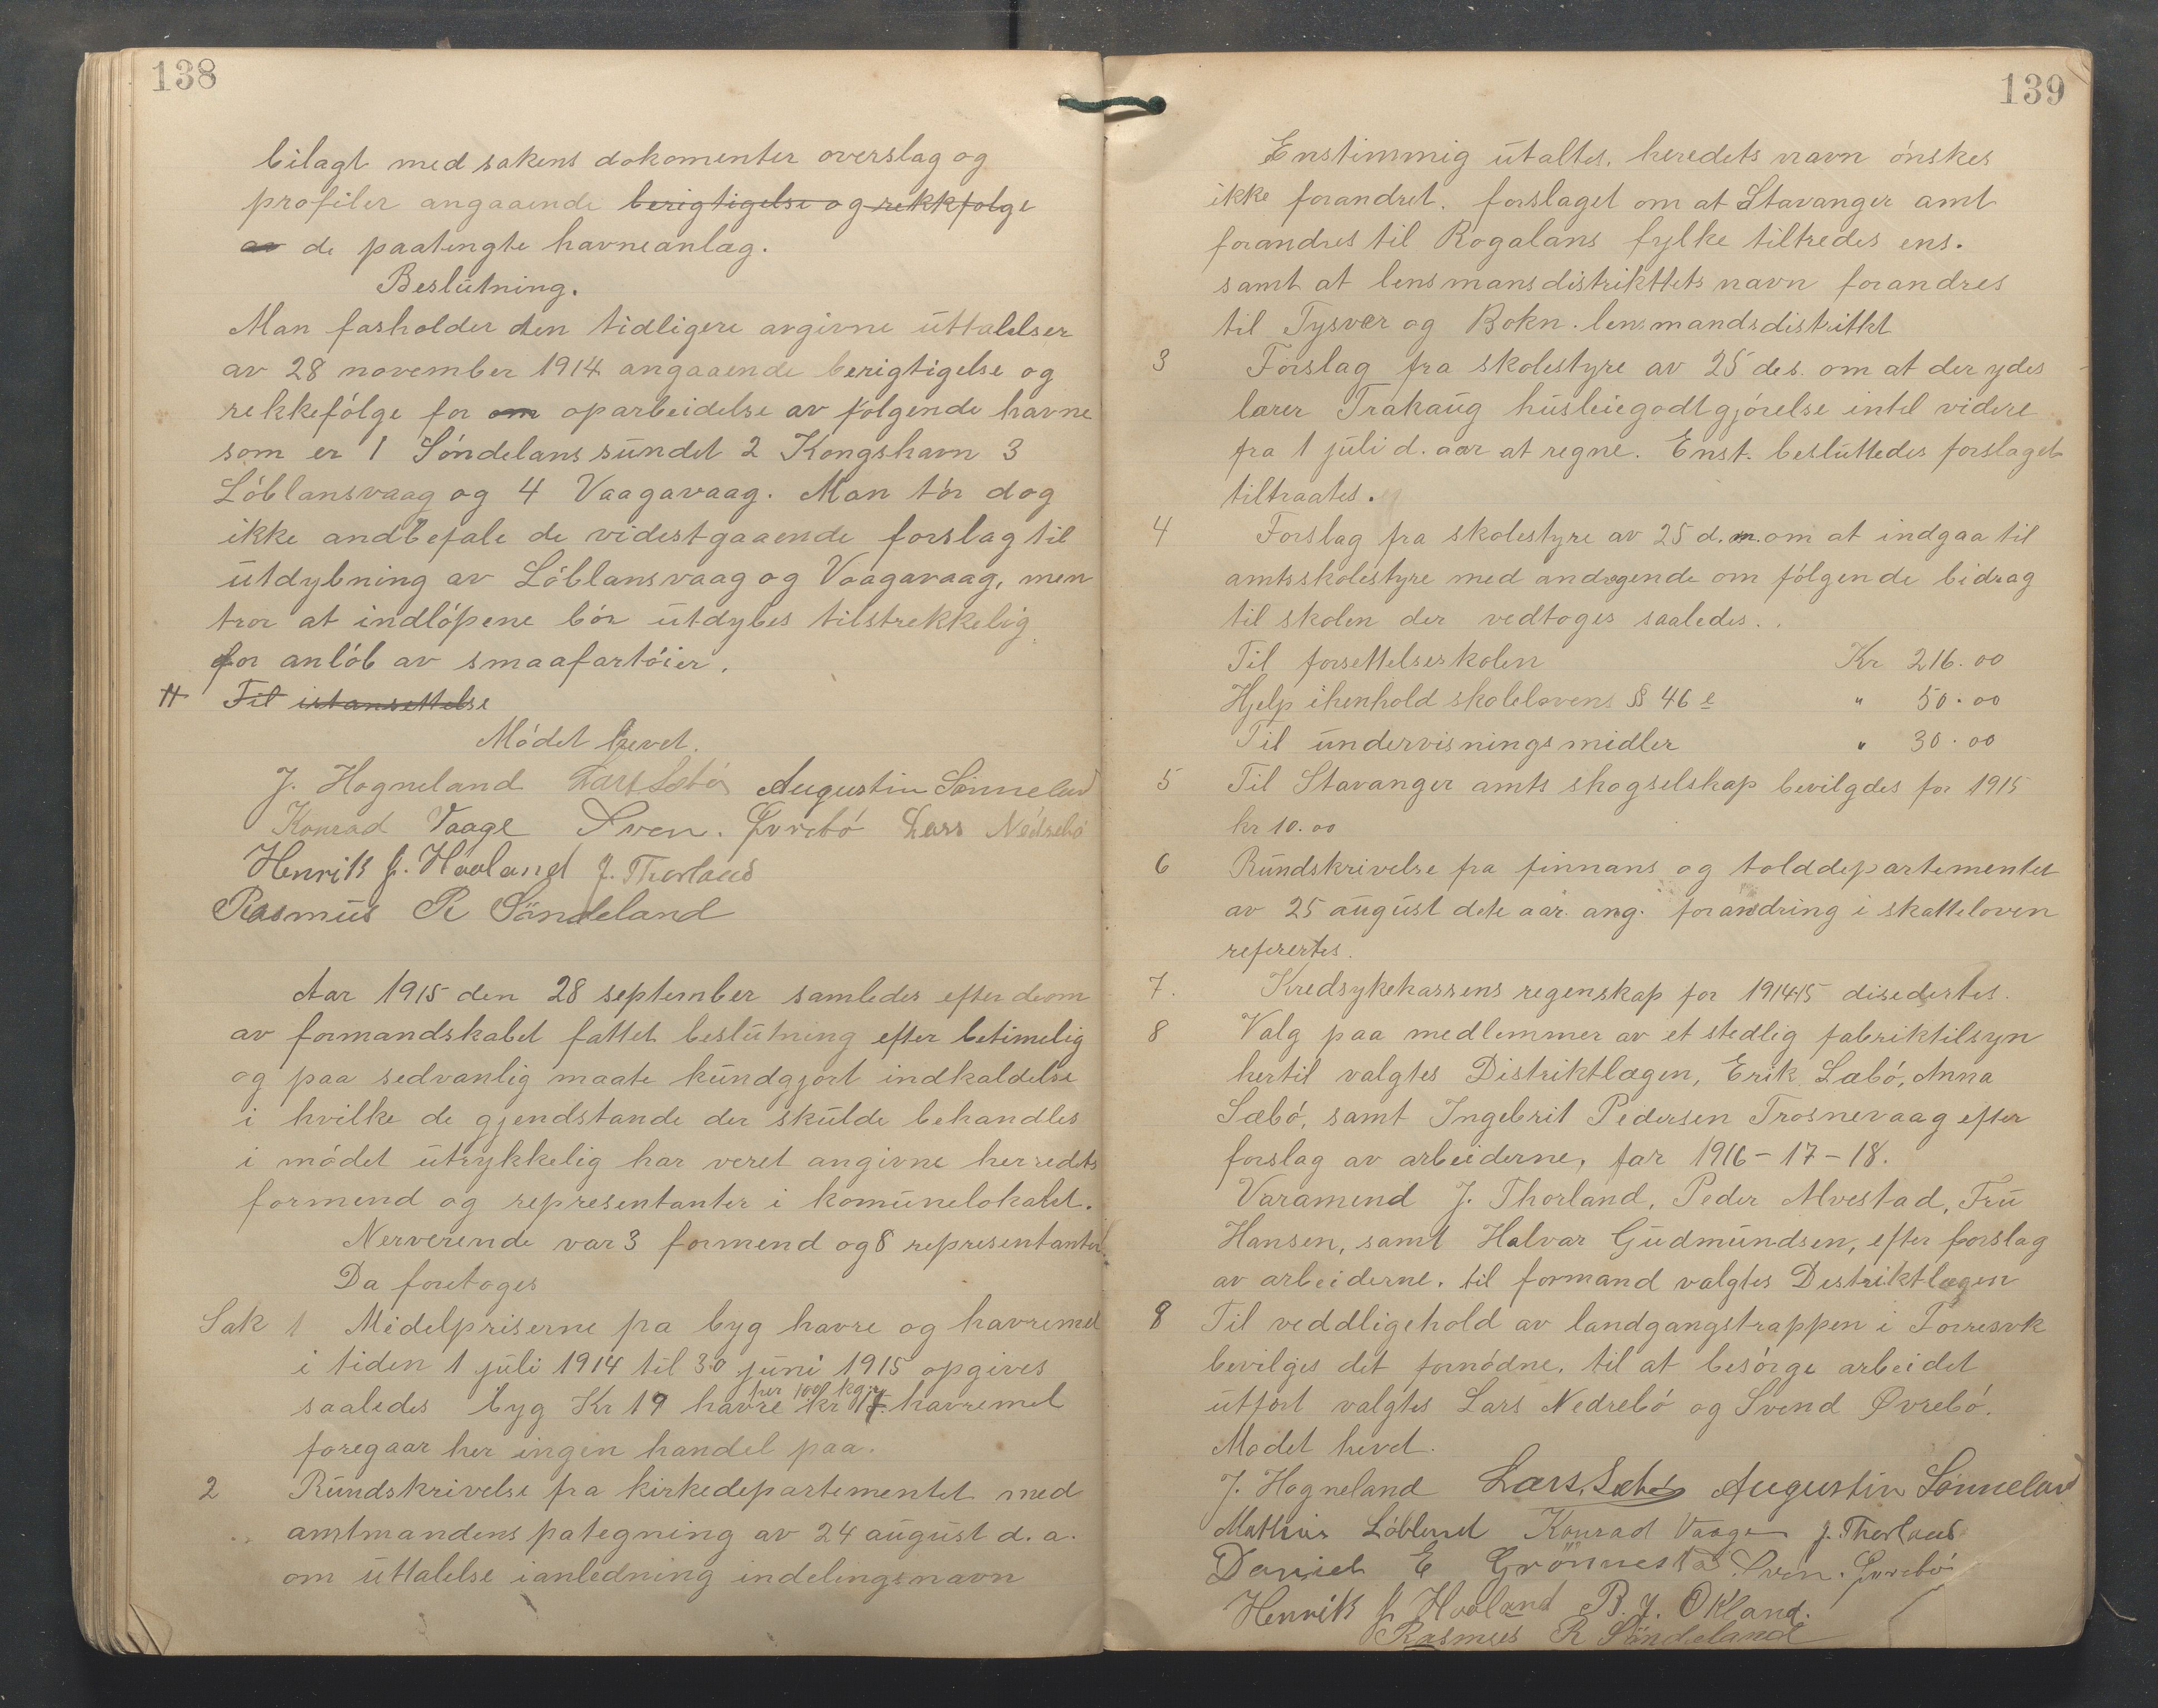 138
bilagt med sakens dokomenter overslag og
profiler angaaende berigtigelse og rekkfolge
av de paatengte havneanlag.
Beslutning.
Man fasholder den tidligere avgivne uttalelser
av 28 november 1914 angaaende berigtigelse og
rekkefólge for om oparbeidelse av fólgende havne
som er 1 Sóndelanssundet 2 Kongshavn 3
Lóblansvaag og 4 Vaagavaag. Man tór dog
ikke andbefale de videstgaaende forslag til
utdybning av Lóblansvaag og Vaagavaag, men
tror at indlópene bór utdybes tilstrekkelig
for anlób av smaafartóier.
H Til istansettelse
Módet hevet.
J. Hogneland Lars Sebó Augustin Sönneland
Konrad Vaage Sven. Øvrebó Lars Nédrebó
Henrik J. Hovland J. Thorland
Rasmus R Söndeland
Aar 1915 den 28 september samledes efter deom
av formandskabet fattet beslutning efter betimelig
og paa sedvanlig maate kundgjort indkaldelse
i hvilke de gjendstande der skulde behandles
i módet utrykkelig har veret angivne herredets
formend og representanter i komunelokalet.
Nerverende var 3 formend og 8 representanter.
Da foretoges
Sak 1 Midelpriserne pa byg havre og havremel
i tiden 1 juli 1914 til 30 juni 1915 opgives
per 100 kg
saaledes byg Kr 19 havre kr 17 havremel
foregaar her ingen handel paa.
2 Rundskrivelse fra kirkedepartementet med
amtmandens pategning av 24 august d. a.
om uttalelse ianledning indelingsnavn
139
Enstimmig utaltes, heredets navn ónskes
ikke forandret. forslaget om at Stavanger amt
forandres til Rogalans fylke tiltredes ens.
samt at lensmansdistrikttets navn forandres
til Tysvær og Bokn. lensmandsdistrikt
3 Forslag fra skolestyre av 25 des. om at der ydes
lærer Trakaug husleiegodtgjórelse intil videre
fra 1 juli d. aar at regne. Enst. besluttedes forslaget
tiltraates.
4 Forslag fra skolestyre av 25 d.m. om at indgaa til
amtsskolestyre med andragende om fólgende bidrag
til skolen der vedtoges saaledes..
Til forsettelseskolen Kr 216.00
Hjelp ihenhold skolelovens § 46 e " 50.00
Til undervisningsmidler " 30.00
5 Til Stavanger amts skogselskap bevilgdes for 1915
kr 10.00
6 Rundskrivelse fra finnans og tolddepartementet
av 25 august dete aar. ang. forandring i skatteloven
referertes.
7. Kredsykekassens regenskap for 1914-15 disedertes.
8 Valg paa medlemmer av et stedlig fabriktilsyn
hertil valgtes Distriktlægen, Erik Læbó, Anna
Sæbó, samt Ingebrit Pedersen Trosnevaag efter
forslag av arbeiderne, for 1916-17-18.
Varamend J. Thorland, Peder Alvestad, Fru
Hansen, samt Halvar Gudmundsen, efter forslag
av arbeiderne. til formand valgtes Distriktlægen
8 Til veddligehold av landgangstrappen i Forresvk
bevilges det fornódne, til at besórge arbeidet
utfort valgtes Lars Nedrebó og Svend Øvrebó.
Modet hevet.
J. Hogneland Lars Sebó Augustin Sönneland
Mathias Lóbland Konrad Vaage J. Thorland
Daniel E Grönnestad Sven. Øvrebó
Henrik J Hovland B. J. Økland.
Rasmus R Söndeland